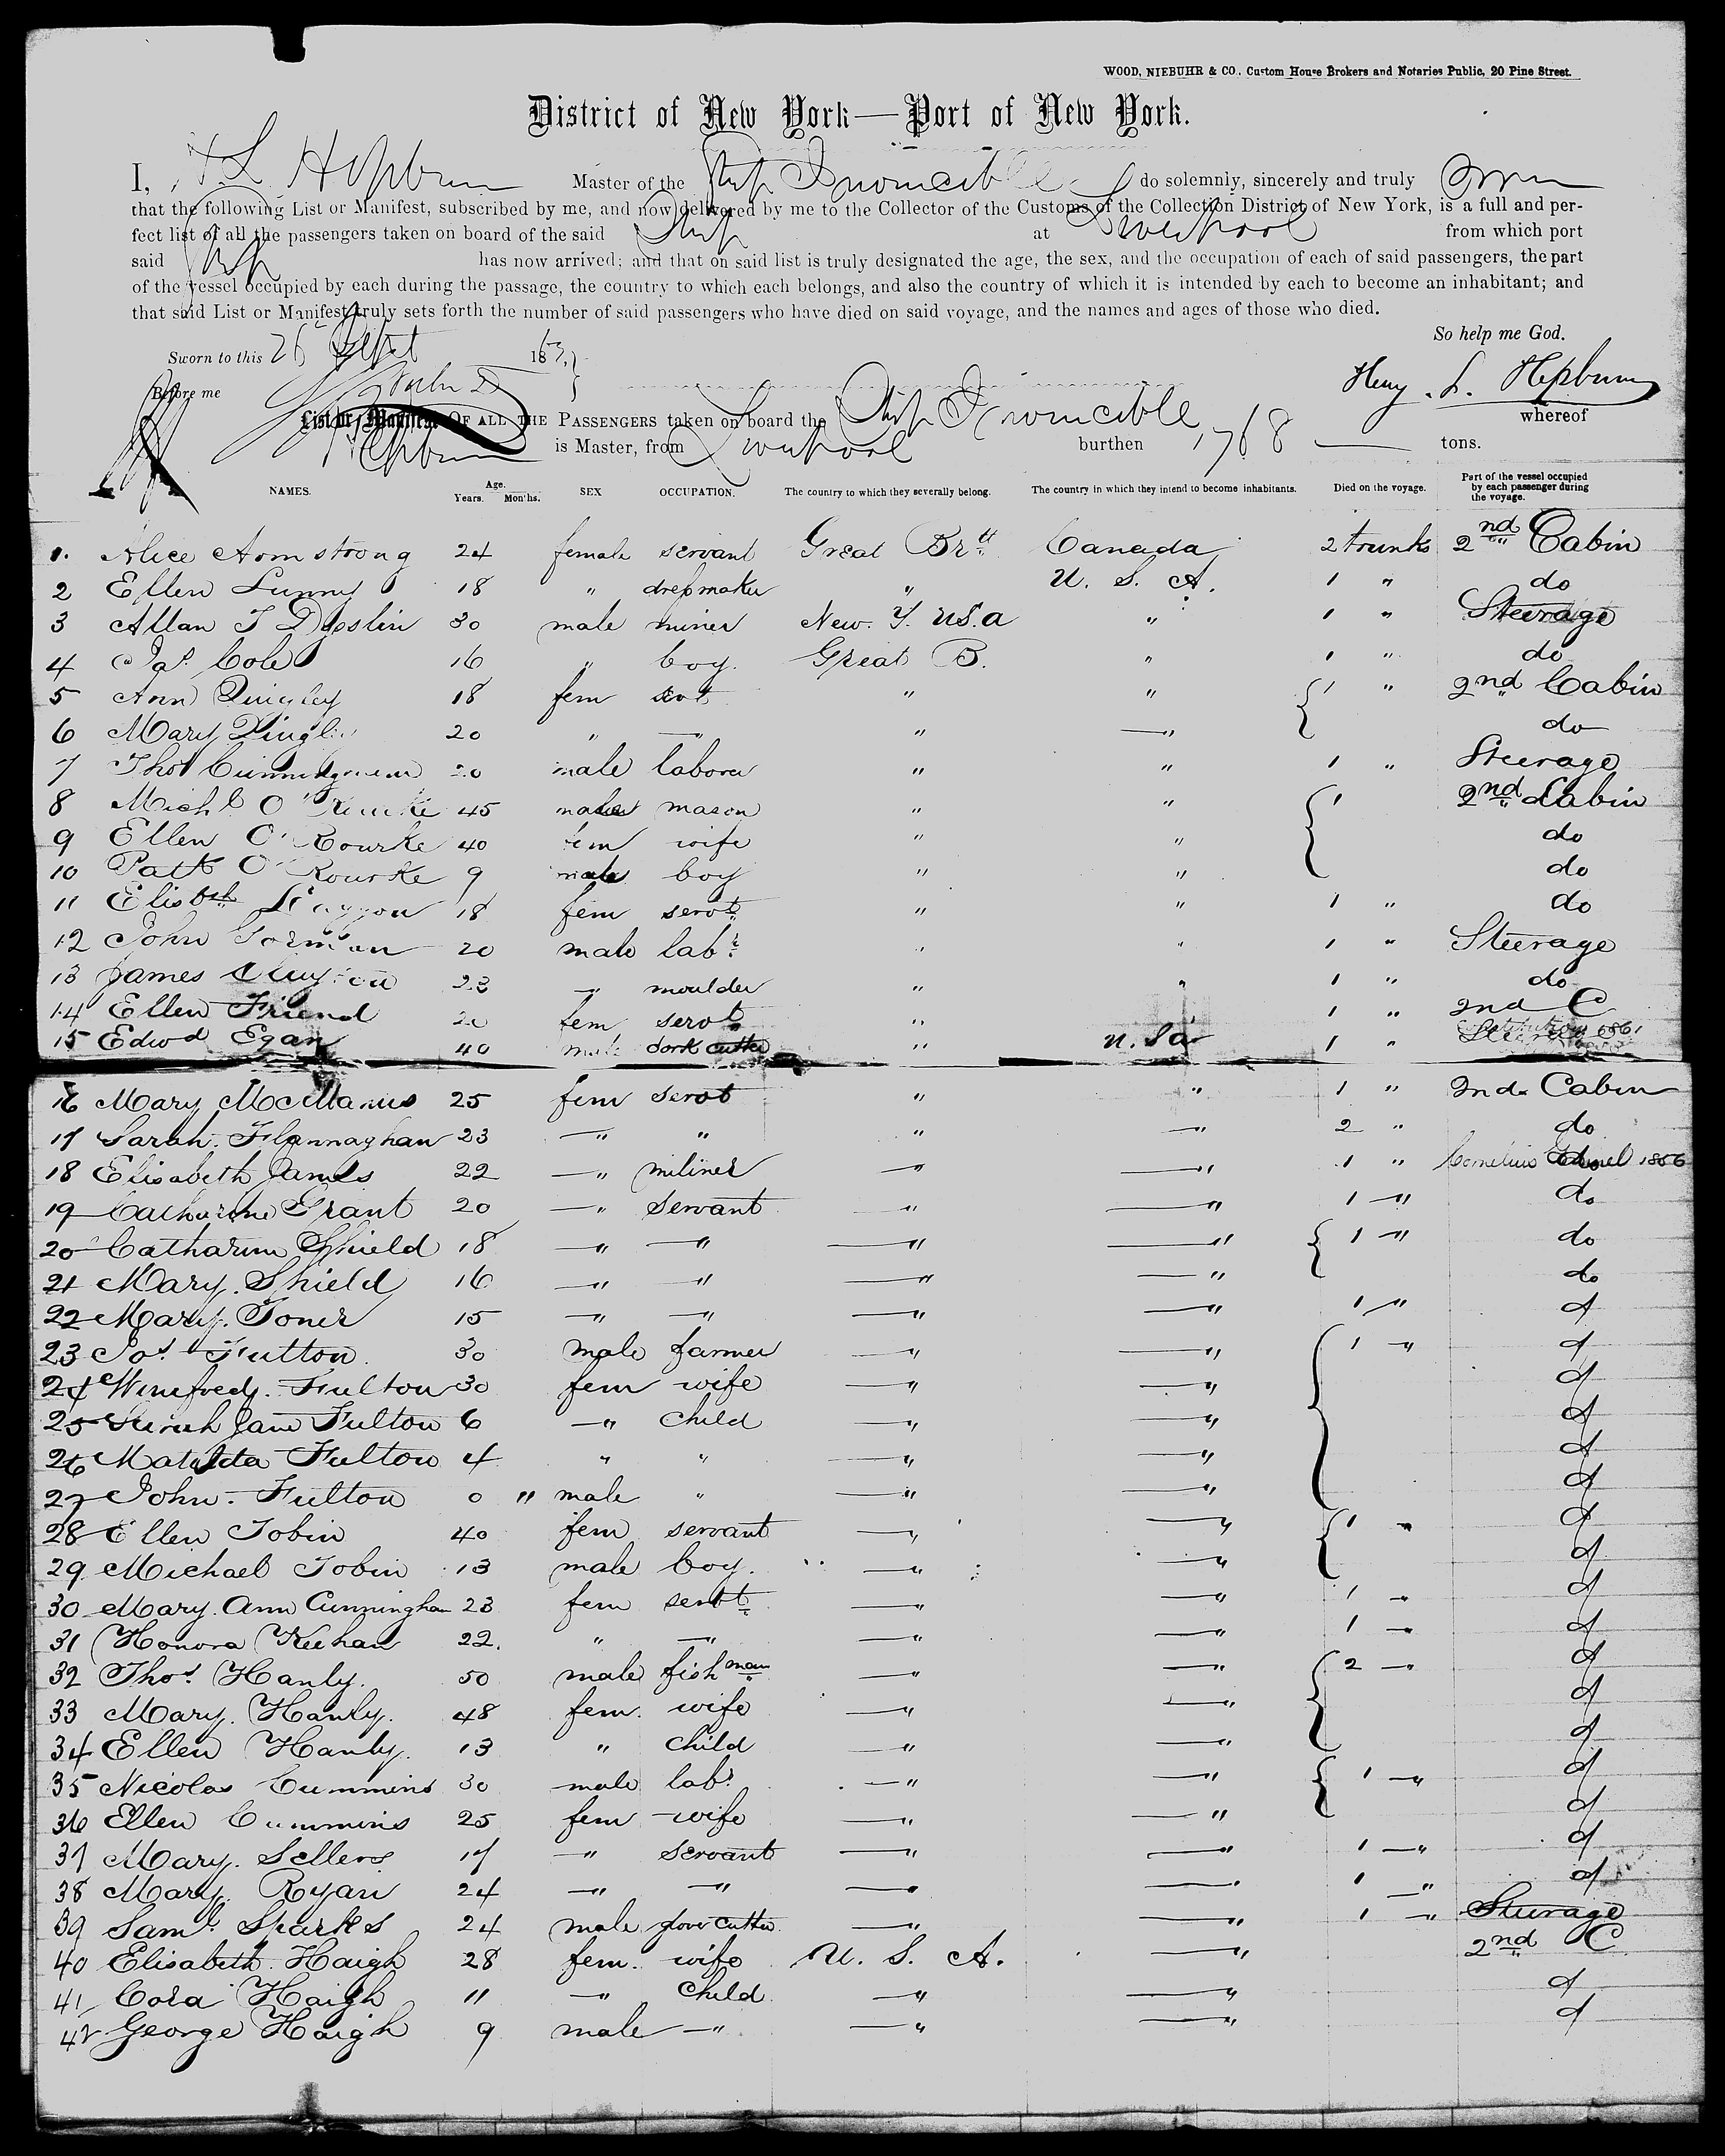 WOOD, NIEBUHR & CO., Custom House Brokers and Notaries Public, 20 Pine Street.
District of New York—Port of New York.
I, H L Hepburn Master of the Ship Invincible do solemnly, sincerely and truly
that the following List or Manifest, subscribed by me, and now delivered by me to the Collector of the Customs of the Collection District of New York, is a full and per-
fect list of all the passengers taken on board of the said Ship at Liverpool from which port
said Ship has now arrived; and that on said list is truly designated the age, the sex, and the occupation of each of said passengers, the part
of the vessel occupied by each during the passage, the country to which each belongs, and also the country of which it is intended by each to become an inhabitant; and
that said List or Manifest truly sets forth the number of said passengers who have died on said voyage, and the names and ages of those who died.
So help me God.
Sworn to this 26 Sept 1863.
Before me
Henry . L. Hepburn
List or Manifest OF ALL THE PASSENGERS taken on board the Ship Invincible whereof
Hepburn is Master, from Liverpool burthen 1768 — tons.
NAMES. Age. Years. Months. SEX OCCUPATION. The country to which they severally belong. The country in which they intend to become inhabitants. Died on the voyage. Part of the vessel occupied by each passenger during the voyage.
1. Alice Armstrong 24 female servant Great Britt Canada 2 trunks 2nd Cabin
2 Ellen Lunny 18 " dressmaker " U. S. A. 1 " do
3 Allan T 30 male miner New. Y. U.S.a " 1 " Steerage
4 Jas. Cole 16 " boy. Great B. " 1 " do
5 Ann Quigley 18 fem servt " " 1 " 2nd Cabin
6 Mary 20 " — " —" do
7 Thos 20 male labora " " 1 " Steerage
8 Michl O'Rourke 45 male mason " " 1 2nd Cabin
9 Ellen O'Rourke 40 fem wife " " do
10 Patk O'Rourke 9 male boy " " do
11 Elisbth 18 fem servt " " 1 " do
12 John Gorman 20 male labr " " 1 " Steerage
13 James 23 —" moulder " " 1 " do
14 Ellen Friend 20 fem servt " 1 " 2nd C
15 Edwd Egan 40 male cork cutter " U. Sa 1 "
16 Mary McManus 25 fem servt " " 1 " 2nd Cabin
17 Sarah. Flannaghan 23 —" " " —" 2 " do
18 Elisabeth James 22 —" miliner —" —" 1 " Cornelius Grinnel 1856
19 Catharine Grant 20 —" servant " —" 1 —" do
20 Catharin Shield 18 —" —" —" —" 1 —" do
21 Mary. Shield 16 —" —" —" —" do
22 Mary. Toner 15 —" —" —" —" 1 —" d
23 Jos. Fulton. 30 male farmer —" —" 1 —" d
24 Winefred. Fulton 30 fem wife —" —" d
25 Sarah Jane Fulton 6 —" child —" —" d
26 Matilda Fulton 4 " " —" —" d
27 John. Fulton 0 " male " —" —" d
28 Ellen Tobin 40 fem servant —" —" 1 —" d
29 Michael Tobin 13 male boy. —" —" d
30 Mary. Ann Cunningham 23 fem servt —" —" 1 —" d
31 Honora Keehan 22. " —" —" —" 1 —" d
32 Thos. Hanly. 50 male fishman —" —" 2 —" d
33 Mary. Hanly. 48 fem. wife —" —" d
34 Ellen Hanly. 13 " child —" —" d
35 Nicolas Cummins 30 male labr —" —" 1 —" d
36 Ellen Cummins 25 fem wife —" —" d
37 Mary. Sellers 17 —" servant —" —" 1 —" d
38 Mary. Ryan 24 —" —" —" —" 1 —" d
39 Saml. Sparks 24 male glove cutter —" —" 1 —" Steerage
40 Elisabeth Haigh 28 fem. wife U. S. A. —" 2nd C
41 Cora Haigh 11 —" child. —" —" d
42 George Haigh 9 male —" —" —" d